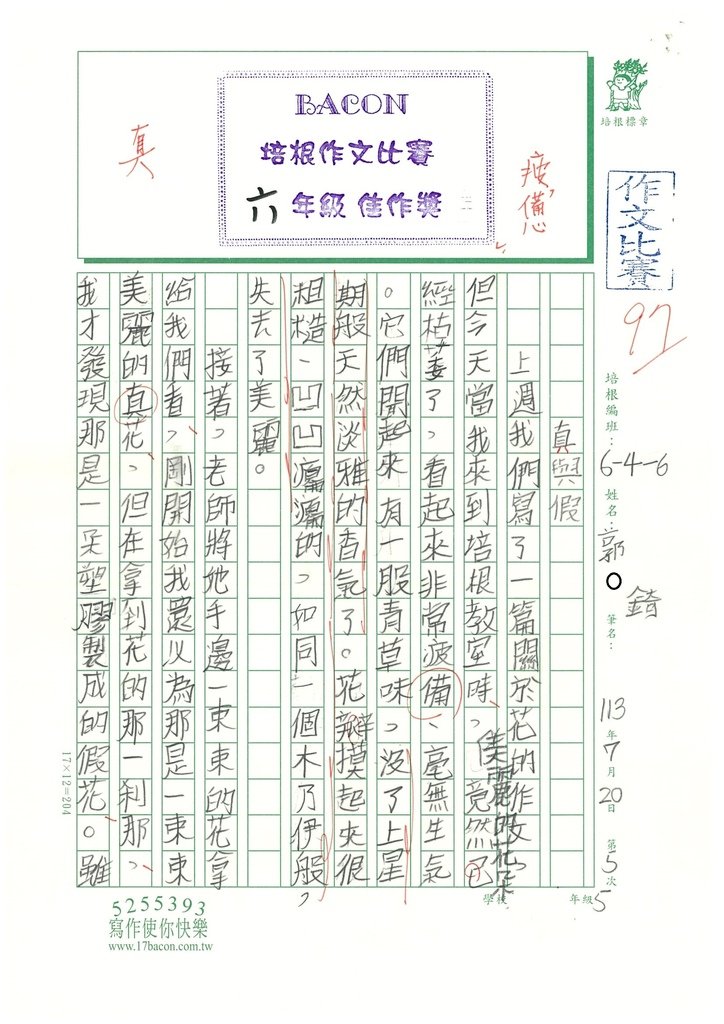 BACON
培根作文比賽
六年級 佳作獎
真
疲憊
培根標章
作文比賽
97
培根編班：6-4-6 姓名：郭○錡 筆名：
113年7月20日 第5次
學校 年級5
真與假
上週我們寫了一篇關於花的作文
但今天當我來到培根教室時，美麗的花朵竟然已
經枯萎了，看起來非常疲備、毫無生氣
。它們聞起來有一股青草味，沒了上星
期般天然淡雅的香氣了。花瓣摸起來很
粗糙、凹凹凸凸的，如同一個木乃伊般，
失去了美麗。
接著，老師將她手邊一束束的花拿
給我們看，剛開始我還以為那是一束束
美麗的真花，但在拿到花的那一剎那，
我才發現那是一朵塑膠製成的假花。雖
17×12=204
5255393
寫作使你快樂
www.17bacon.com.tw